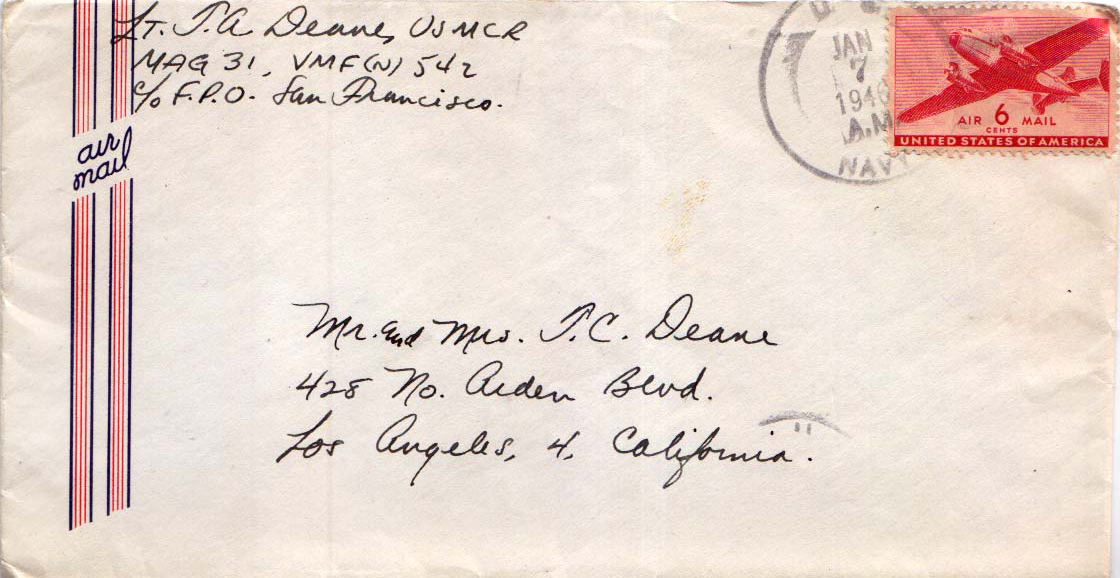 Lt. T. A Deane, USMCR
MAG 31, VMF(N) 542
c/o F.P.O. San Francisco.
air
mail
U. S.
JAN
7
1946
A.M.
NAVY
AIR 6 MAIL
CENTS
UNITED STATES OF AMERICA
Mr. and Mrs. T. C. Deane
428 No. Arden Blvd.
Los Angeles, 4, California.